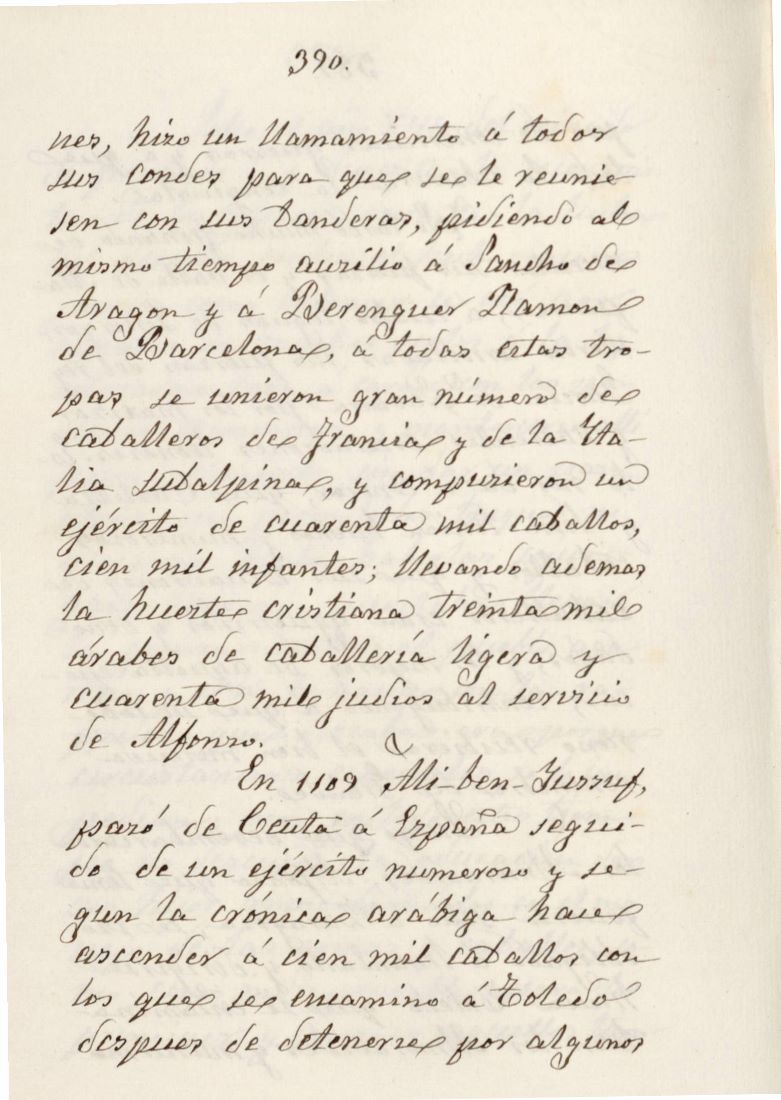 390.
nes, hizo un llamamiento á todos
sus condes para que se le reunie
sen con sus banderas, pidiendo al
mismo tiempo auxilio á Sancho de
Aragon y á Berenguer Ramon
de Barcelona, á todas estas tro-
pas se unieron gran número de
caballeros de Francia y de la Yta-
lia subalpina, y compusieron un
ejército de cuarenta mil caballos,
cien mil infantes; llevando ademas
la hueste cristiana treinta mil
árabes de caballería ligera y
cuarenta mil judios al servicio
de Alfonso.
En 1109 Ali-ben-Jussuf,
pasó de Ceuta á España segui-
do de un ejército numeroso y se-
gun la crónica arábiga hace
ascender á cien mil caballos con
los que se encamino á Toledo
despues de detenerse por algunos